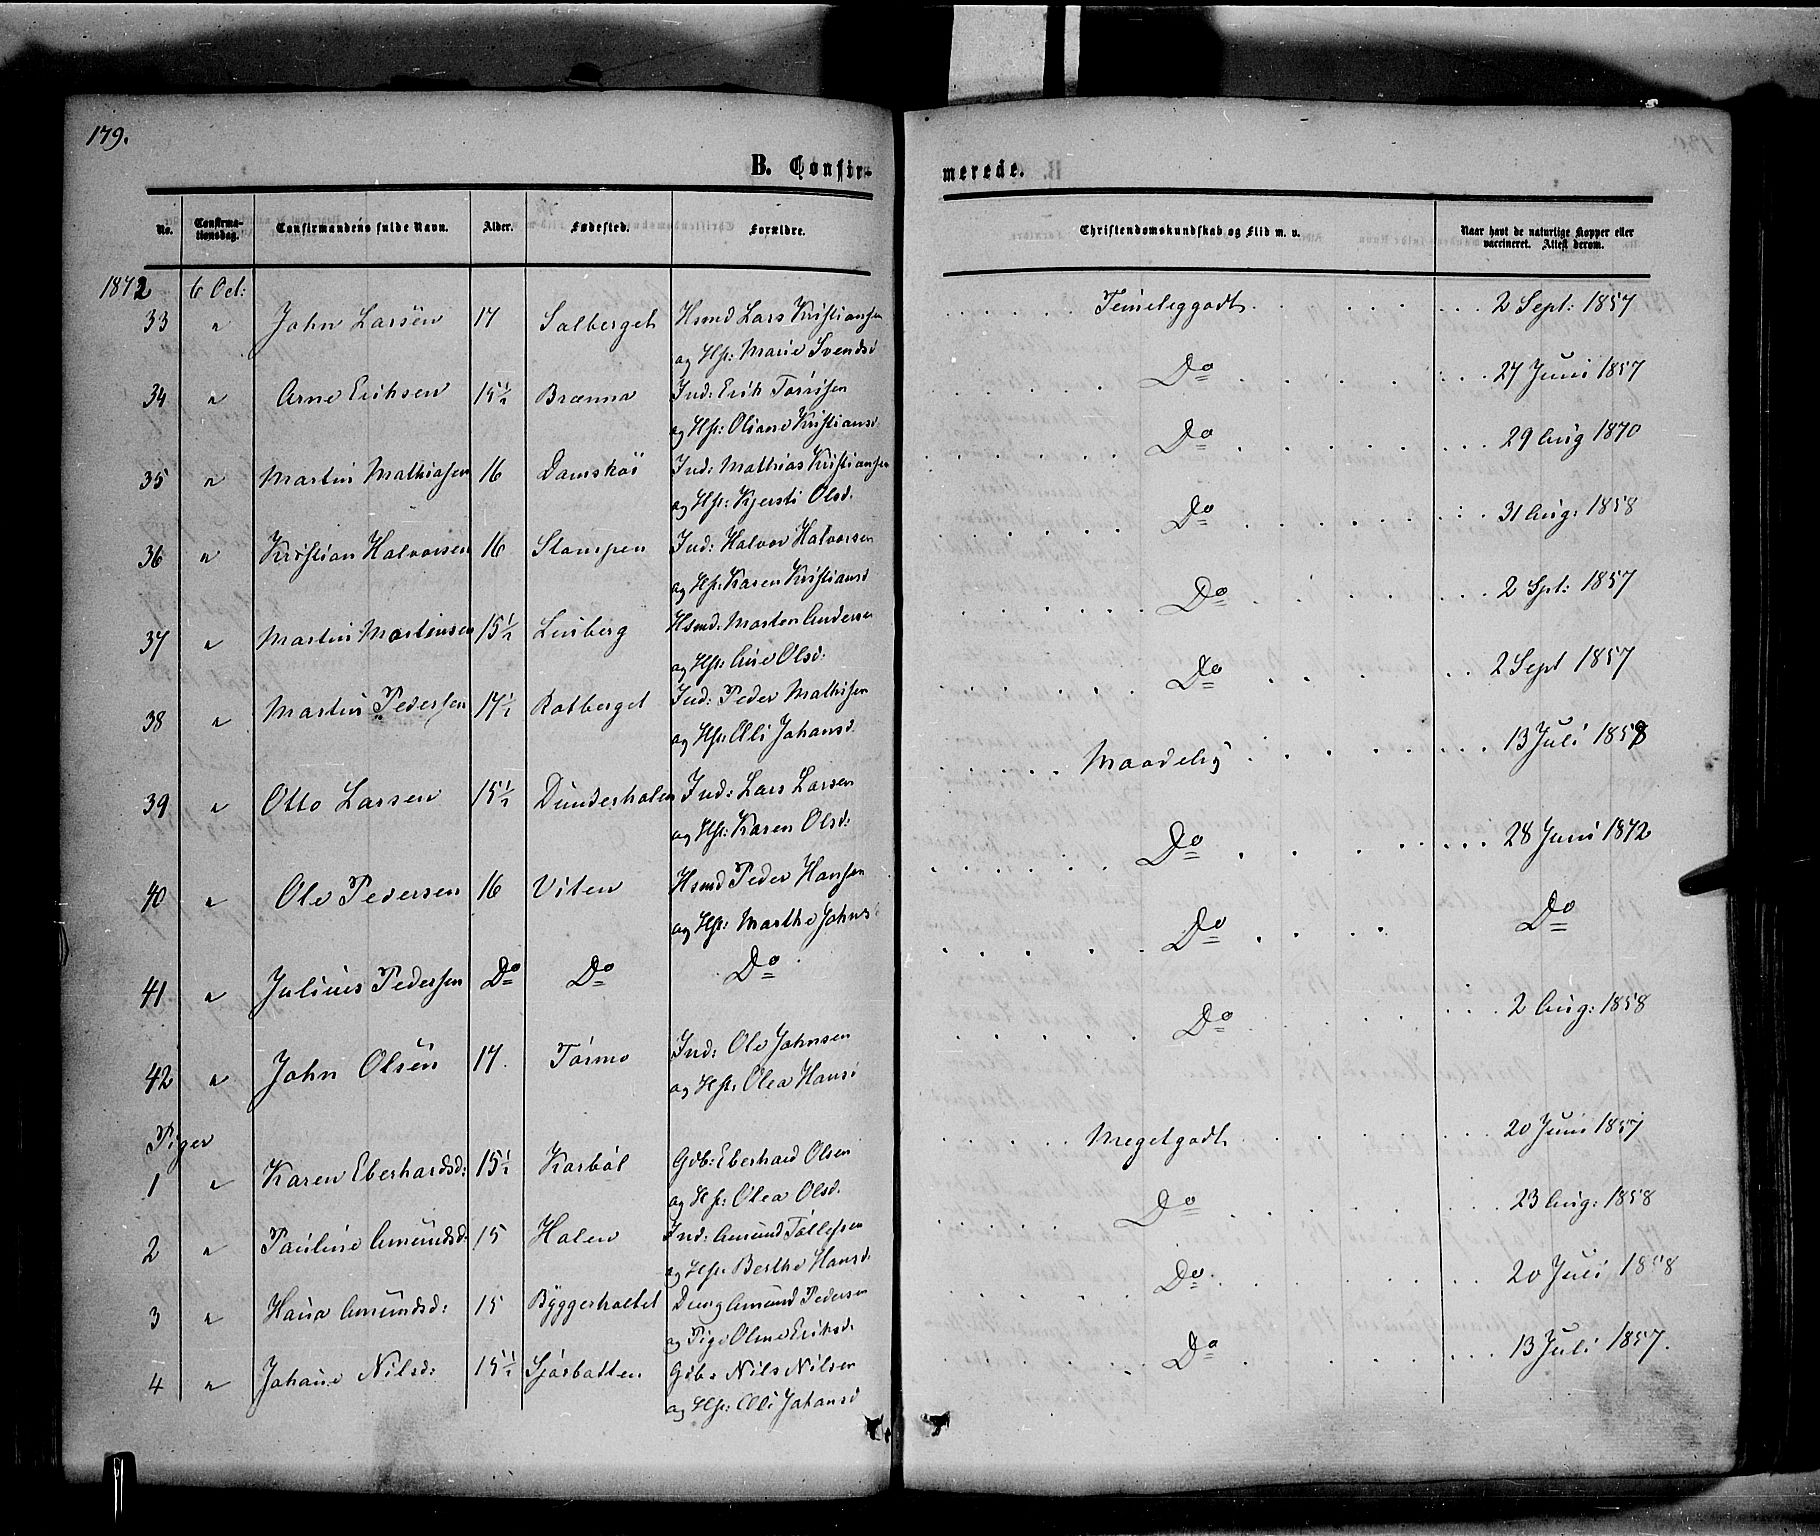 179.
B. Confirmerede.
No. Confirmationsdag. Confirmandens fulde Navn. Alder. Fødested. Forældre. Christendomskundskab og Flid m. v. Naar havt de naturlige Kopper eller vaccineret. Attest derom.
1872 6 Oct:
33 " John Larsen 17 Solberget Hsmd Lars Kristiansen Temeleggodt 2 Sept: 1857
og Hst: Marie Svendsd
34 " Arne Eriksen 15½ Brænna Ind: Erik Tørrisen Do 27 Juni 1857
og Hst: Oliane Kristiansd
35 " Martin Mathiasen 16 Damsköi Ind: Mathias Kristiansen Do 29 Aug 1870
og Hst: Kjersti Olsd:
36 " Kristian Halvorsen 16 Stampen Ind: Halvor Halvorsen Do 31 Aug: 1858
og Hst: Karen Kristiansd
37 " Martin Martinsen 15½ Linberg Hsmd: Morten Andersen Do 2 Spt: 1857
og Hst: Ane Olsd:
38 " Martin Pedersen 17½ Rotberget Ind: Peder Mathisen Do 2 Sept 1857
og Hst: Eli Johansd
39 " Otto Larsen 15½ Dunderholen Ind: Lars Larsen Maadelig 13 Juli 1858
og Hst: Karen Olsd:
40 " Ole Pedersen 16 Viten Hsmd Peder Hansen Do 28 Juni 1872
og Hst: Marthe Johns:
41 " Julius Pedersen Do Do Do Do Do
42 " John Olsen 17. Törmo Ind: Ole Johnsen Do 2 Aug: 1858
og Hst: Olea Hans:
Piger
1 " Karen Eberhardsd: 15½ Karböl Gdb: Eberhard Olsen Megetgodt 20 Juni 1857
og Hst: Olea Olsd.
2 " Pauline Amundsd: 15 Holen Ind: Amund Tollefsen Do 23 Aug: 1858
og Hst: Berthe Hansd:
3 " Hana Amundsd: 15 Byggerholtet Ung Amund Pedersen Do 20 Juli 1858
og Pige Oline Eriksd:
4 " Johane Nilsd: 15½ Sjösbotten Gdb: Nils Nilsen Do 13 Juli 1857.
og Hst: Eli Johansd